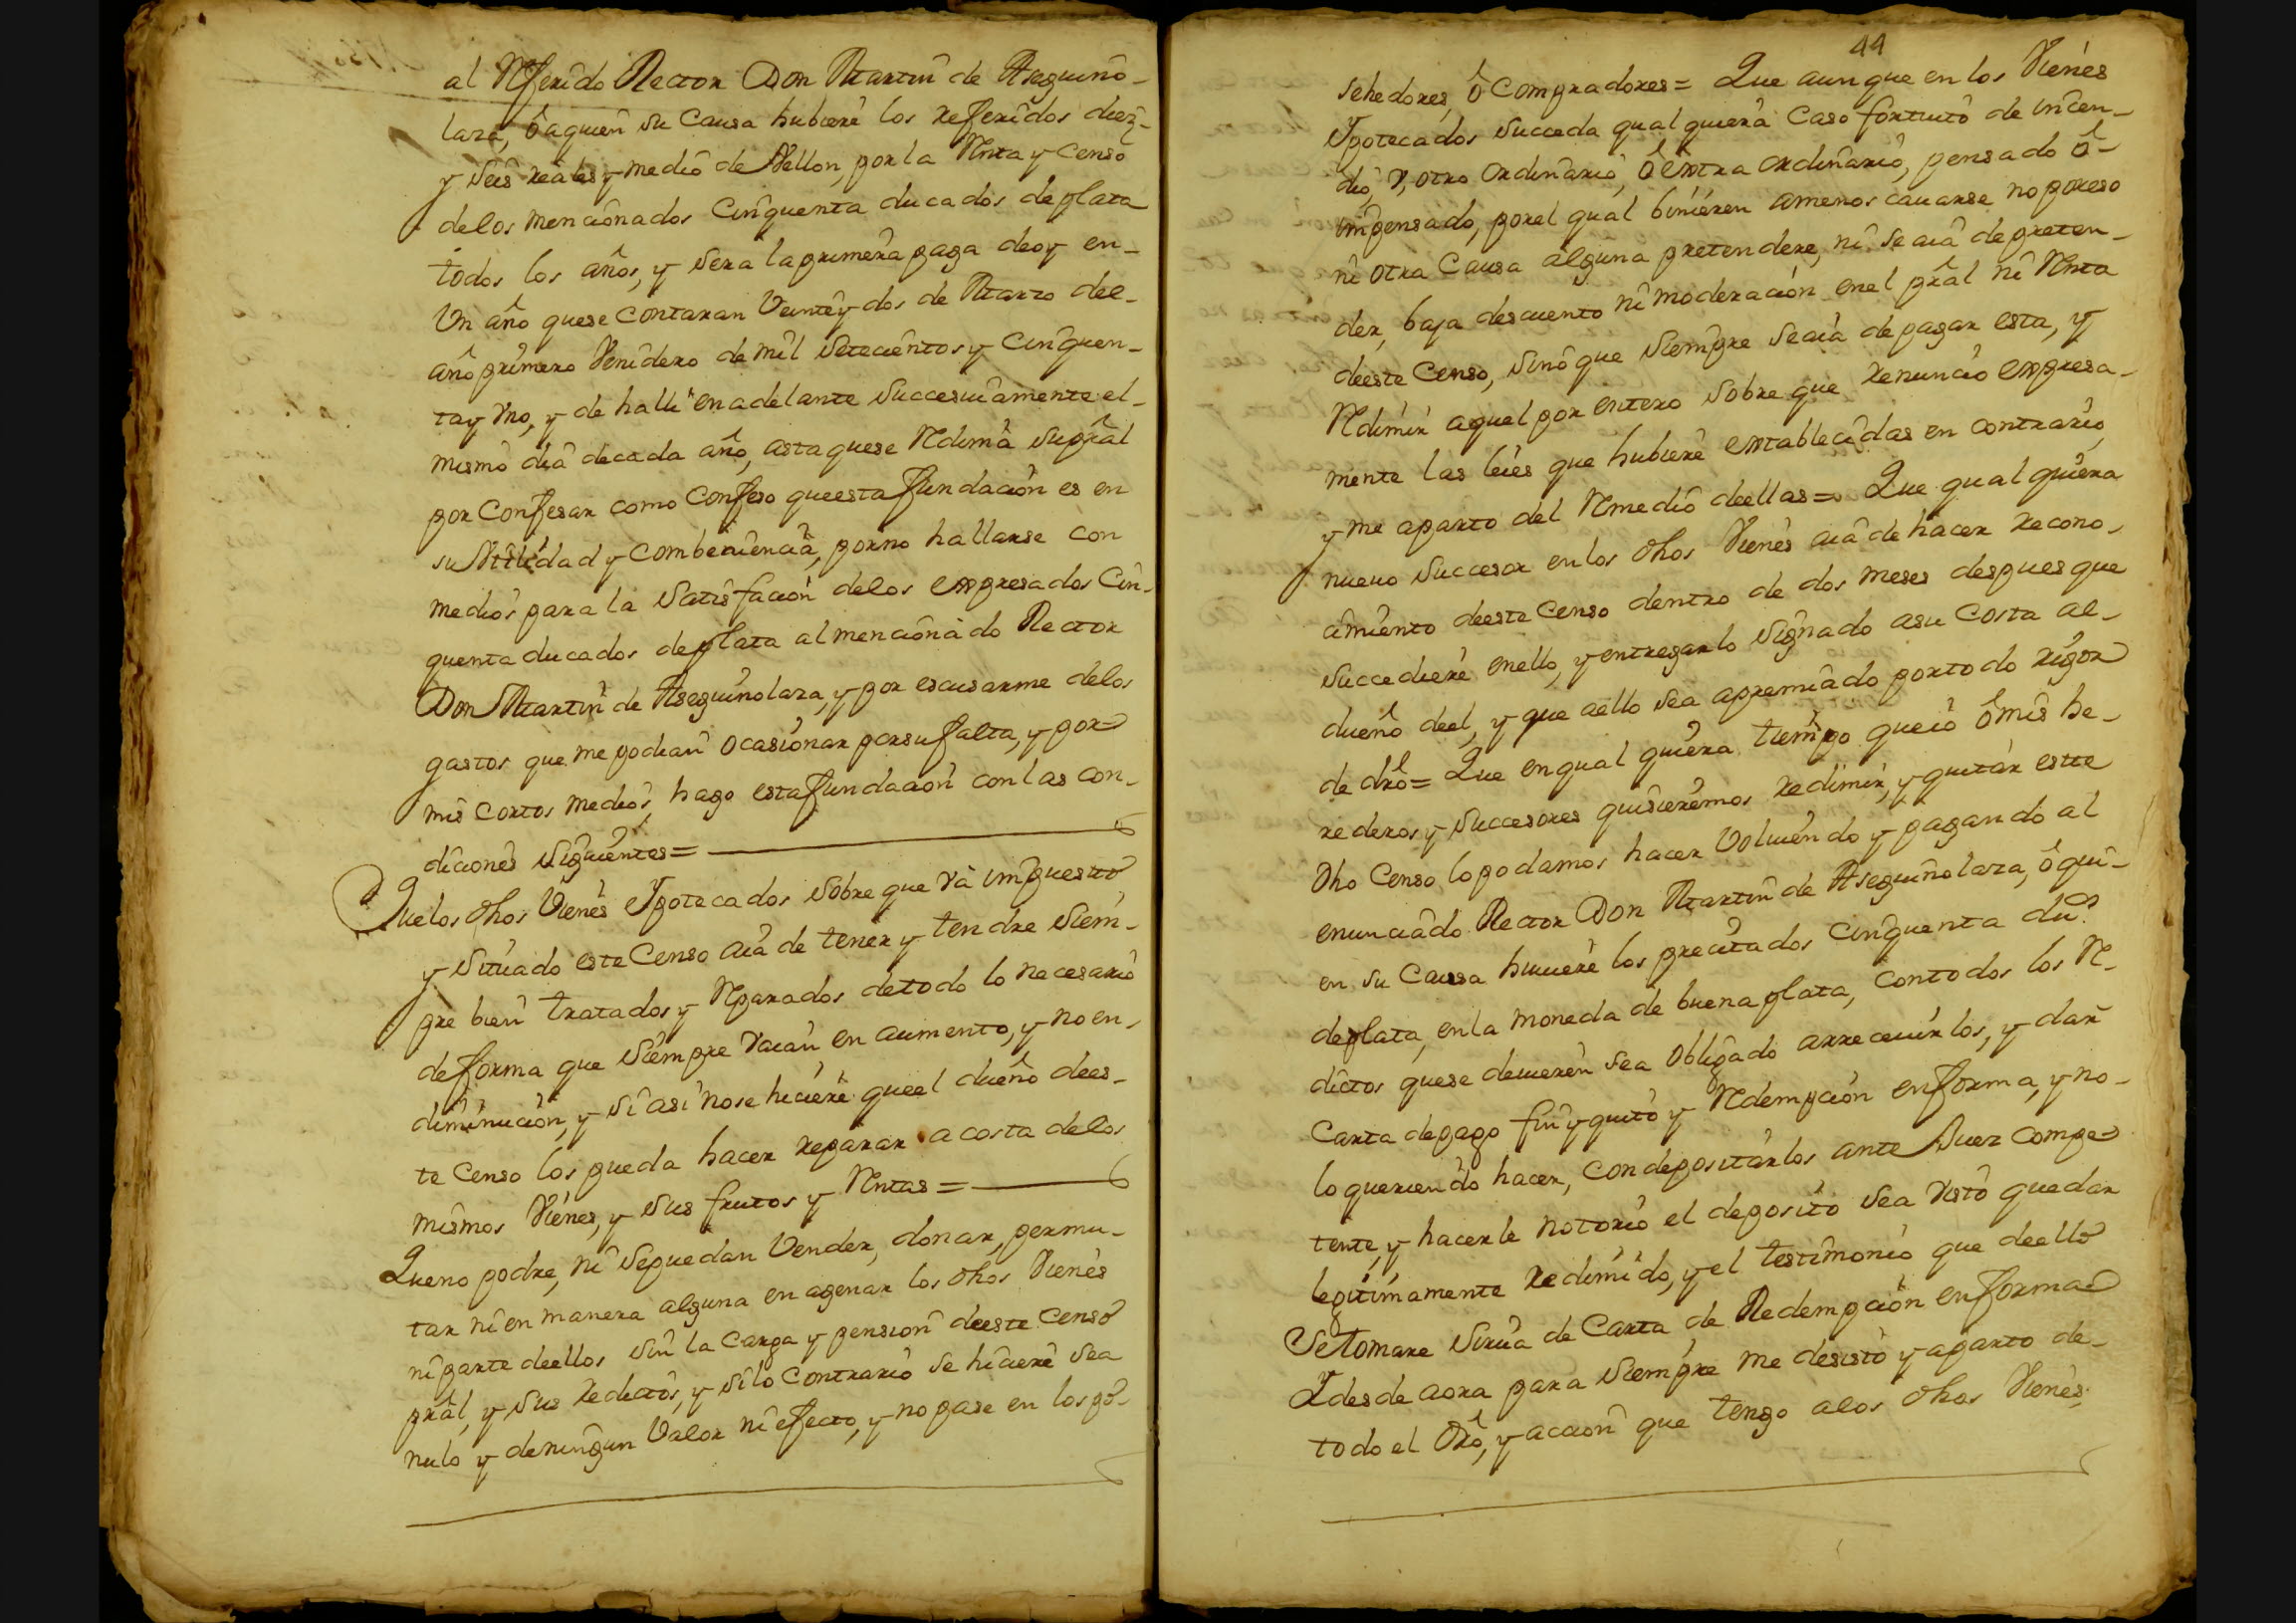 al Referido Rector Don Martin de Aseguino-
laza, ô aquien su Causa hubiere los referidos diez-
y seis reales y medio de Vellon, por la Renta y Censo
delos mencionados Cinquenta ducados de plata
todos los años, y sera la primera paga de oy en-
Un año quese contaran Veinte y dos de Marzo del-
año primero Venidero de mil Setecientos y Cinquen-
ta y Uno, y de halli en adelante Succesivamente el-
mismo dia de cada año, asta quese Redima su prâl
por Confesar como Confeso que esta fundacion es en
su Utilidad y Combeniencia, por no hallarse con
medios para la Satisfacion delos expresados Cin-
quenta ducados de plata al mencionado Rector
Don Martin de Aseguinolaza, y por escusarme delos
gastos que me podian ocasionar por su falta, y por
mis cortos medios, hago esta fundacion con las con-
diciones siguientes=
Que los dhos Vienes Ypotecados sobre que va impuesto
y situado este Censo aia de tener y tendre siem-
pre bien tratados y Reparados de todo lo necesario
de forma que siempre vaian en aumento, y no en-
diminucion, y si asi nose hiciere que el dueño dees-
te Censo los pueda hacer reparar a costa delos
mismos Vienes, y sus frutos y Rentas=
Que no podre, ni sepuedan Vender, donar, permu-
tar ni en manera alguna en agenar los dhos Vienes
ni parte deellos sin la Carga y pension deeste Censo
prâl, y sus redictos, y silo Contrario se hiciere sea
nulo y de ningun Valor ni efecto, y no pase en los po-
44
sehedores, ô Compradores= Que aunque en los Vienes
Ypotecados succeda qual quiera Caso fortuito de incen-
dio, V, otro ordinario, ô extra ordinario, pensado ô-
impensado, porel qual binieren amenos cavarse no poreso
ni otra Causa alguna pretendere, ni se aia de preten-
der, baja descuento ni moderacion enel prâl ni Renta
deeste Censo, sino que siempre se aia de pagar esta, y
Redimir aquel por entero sobre que renuncio expresa-
mente las leies que hubiere extablecidas en contrario,
y me aparto del Remedio deellas= Que qual quiera
nuevo succesor en los dhos Vienes aia de hacer recono-
cimiento deeste Censo dentro de dos meses despues que
succediere enello, y entregarlo Signado asu Costa al-
dueño deel, y que aello sea apremiado por todo rigor
de drô= Que en qual quiera tiempo queio ô mis he-
rederos y succesores quisieremos redimir, y quitar este
dho Censo lo podamos hacer Volviendo y pagando al
enunciado Rector Don Martin de Aseguinolaza, ô qui-
en su Causa huuiere los precitados Cinquenta dus
deplata, en la moneda de buena plata, con todos los Re-
dictos quese deuieren sea obligado arrecevirlos, y dar
Carta de pago fin y quito y Redempcion enforma, y no-
lo queriendo hacer, con depositarlos ante Juez Compe-
tente, y hacerle notorio el deposito sea visto quedar
legitimamente redimido, y el testimonio que deello
se tomare sirva de Carta de Redempcion enforma
Y desde aora para siempre me desisto y aparto de-
todo el drô, y accion que tengo alos dhos Vienes